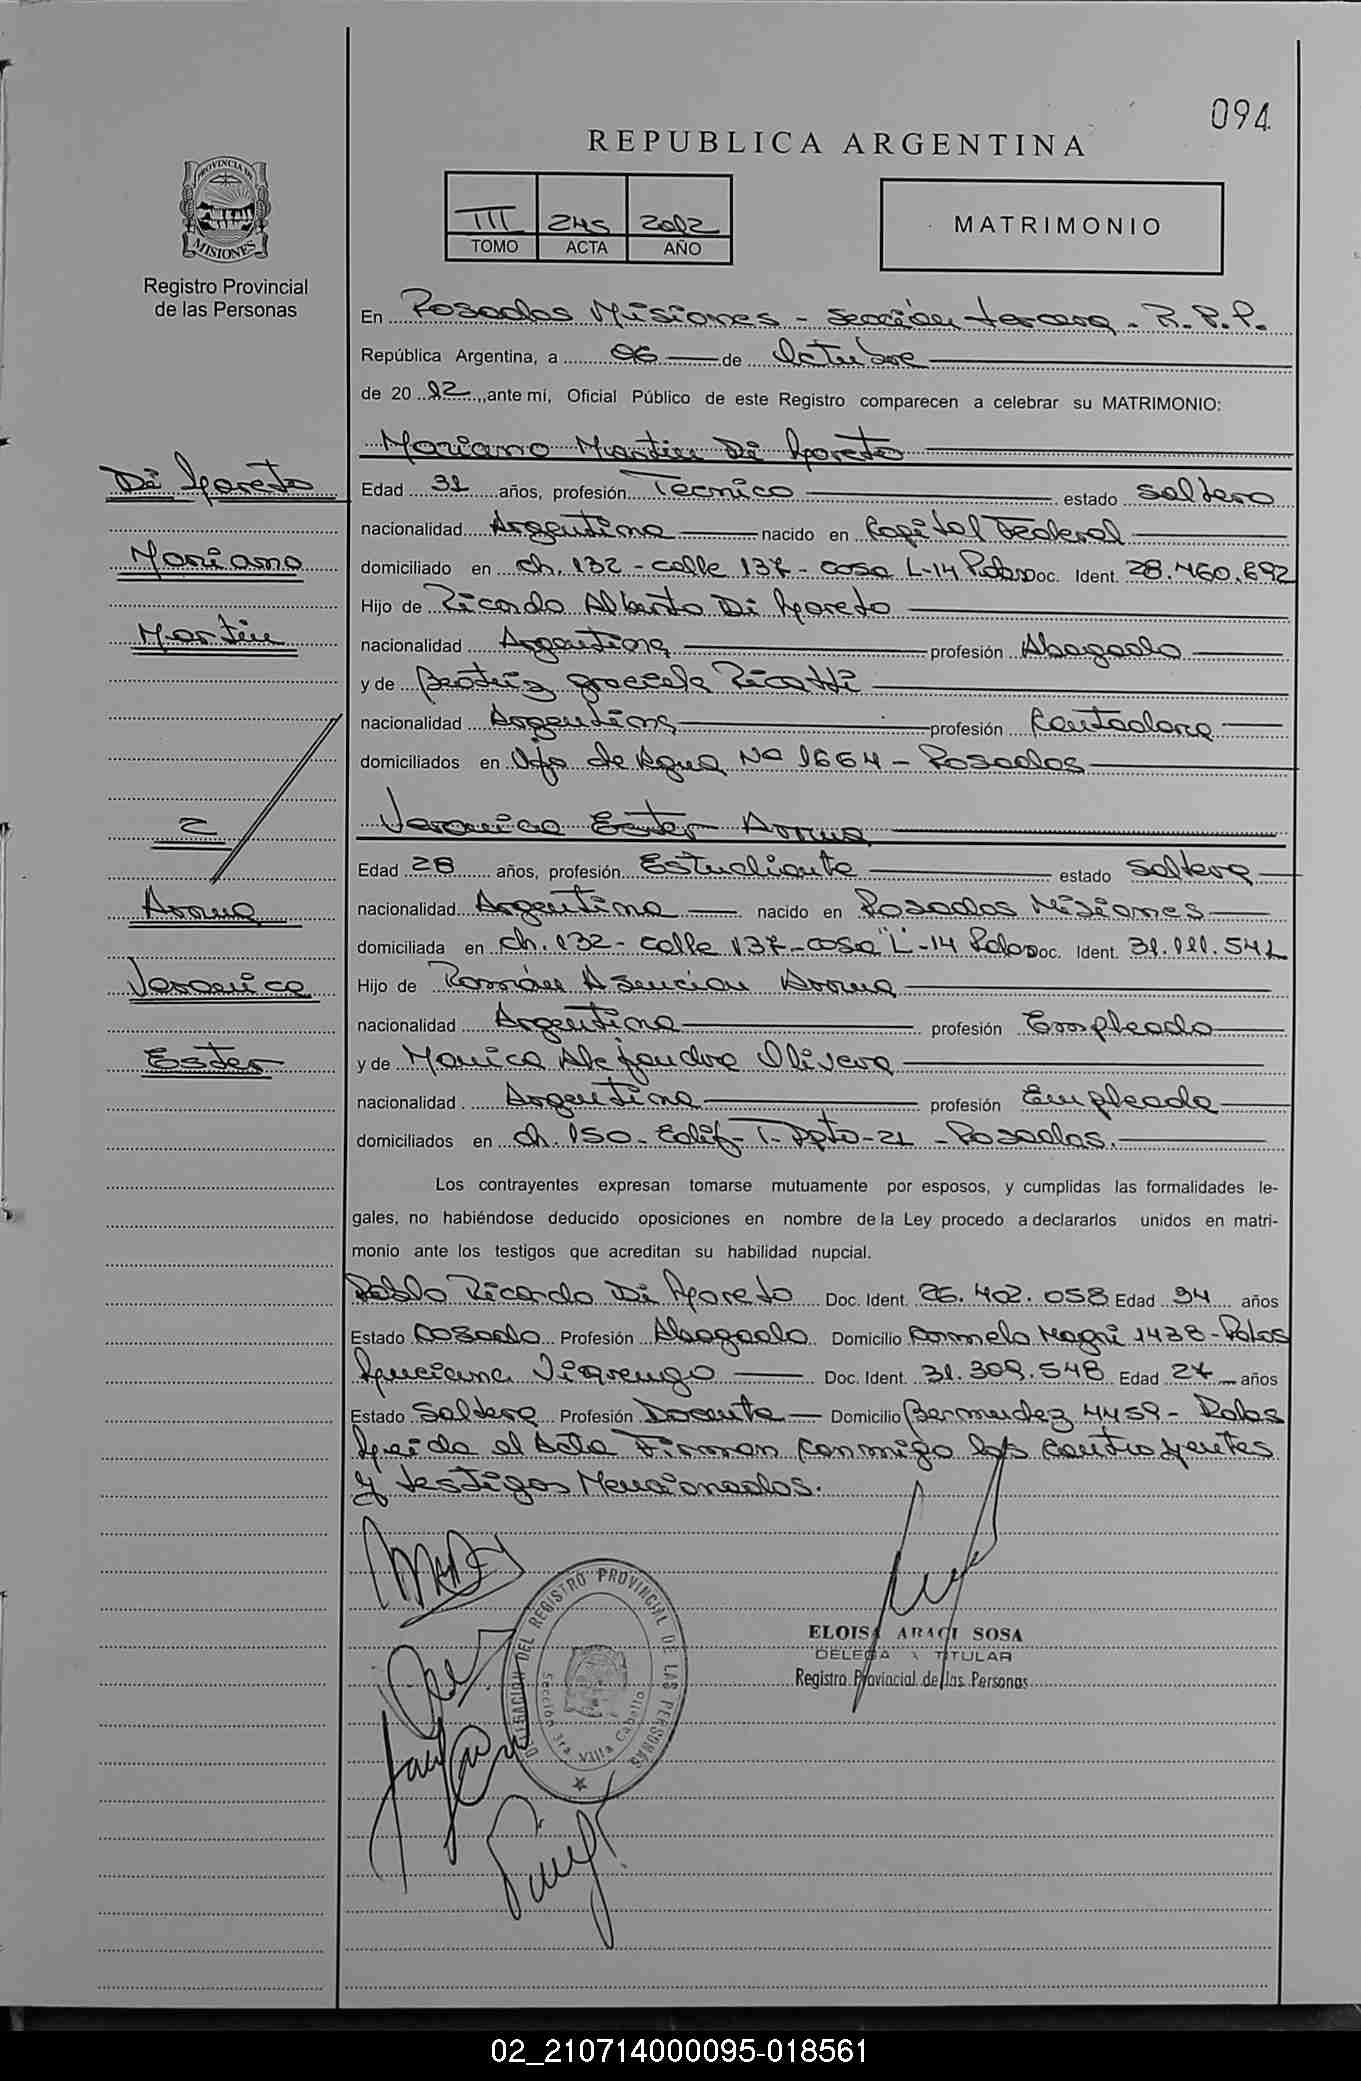 094
REPUBLICA ARGENTINA
PROVINCIA DE
MISIONES
Registro Provincial
de las Personas
III 245 2012
TOMO ACTA AÑO
MATRIMONIO
En Posadas Misiones - Sección tercera - R.P.P.
República Argentina, a 06 de Octubre
de 20 12, ante mí, Oficial Público de este Registro comparecen a celebrar su MATRIMONIO:
Mariano Martin Di Loreto
Di Loreto
Edad 31 años, profesión Tecnico estado Soltero
nacionalidad Argentina nacido en Capital Federal
Mariano
domiciliado en ch. 132 - calle 137 - casa L-14 Pdas Doc. Ident. 28.460.692
Hijo de Ricardo Alberto Di Loreto
Martin
nacionalidad Argentina profesión Abogado
y de Beatriz Graciela Ricatti
nacionalidad Argentina profesión Contadora
domiciliados en Ojo de Agua Nº 1664 - Posadas
Z
Veronica Ester Arrua
Edad 28 años, profesión Estudiante estado Soltera
Arrua
nacionalidad Argentina nacido en Posadas Misiones
domiciliada en ch. 132 - calle 137 - casa "L"-14 Pdas Doc. Ident. 31.111.541
Veronica
Hijo de Román Asencion Arrua
nacionalidad Argentina profesión Empleado
Ester
y de Monica Alejandra Olivera
nacionalidad Argentina profesión Empleada
domiciliados en ch. 150 - Edif - T - Dpto - 21 - Posadas.
Los contrayentes expresan tomarse mutuamente por esposos, y cumplidas las formalidades le-
gales, no habiéndose deducido oposiciones en nombre de la Ley procedo a declararlos unidos en matri-
monio ante los testigos que acreditan su habilidad nupcial.
Pablo Ricardo Di Loreto Doc. Ident. 26.402.058 Edad 34 años
Estado Casado Profesión Abogado Domicilio Carmelo Magri 1438 - Pdas
Luciana Viarengo Doc. Ident. 31.309.548 Edad 27 años
Estado Soltera Profesión Docente Domicilio Bermudez 4459 - Pdas
Leida el Acta Firman conmigo los contrayentes
y testigos Mencionados.
DELEGACION DEL REGISTRO PROVINCIAL DE LAS PERSONAS
Sección 3ra. Villa Cabello
ELOISA ARACI SOSA
DELEGADA TITULAR
Registro Provincial de las Personas
02_210714000095-018561